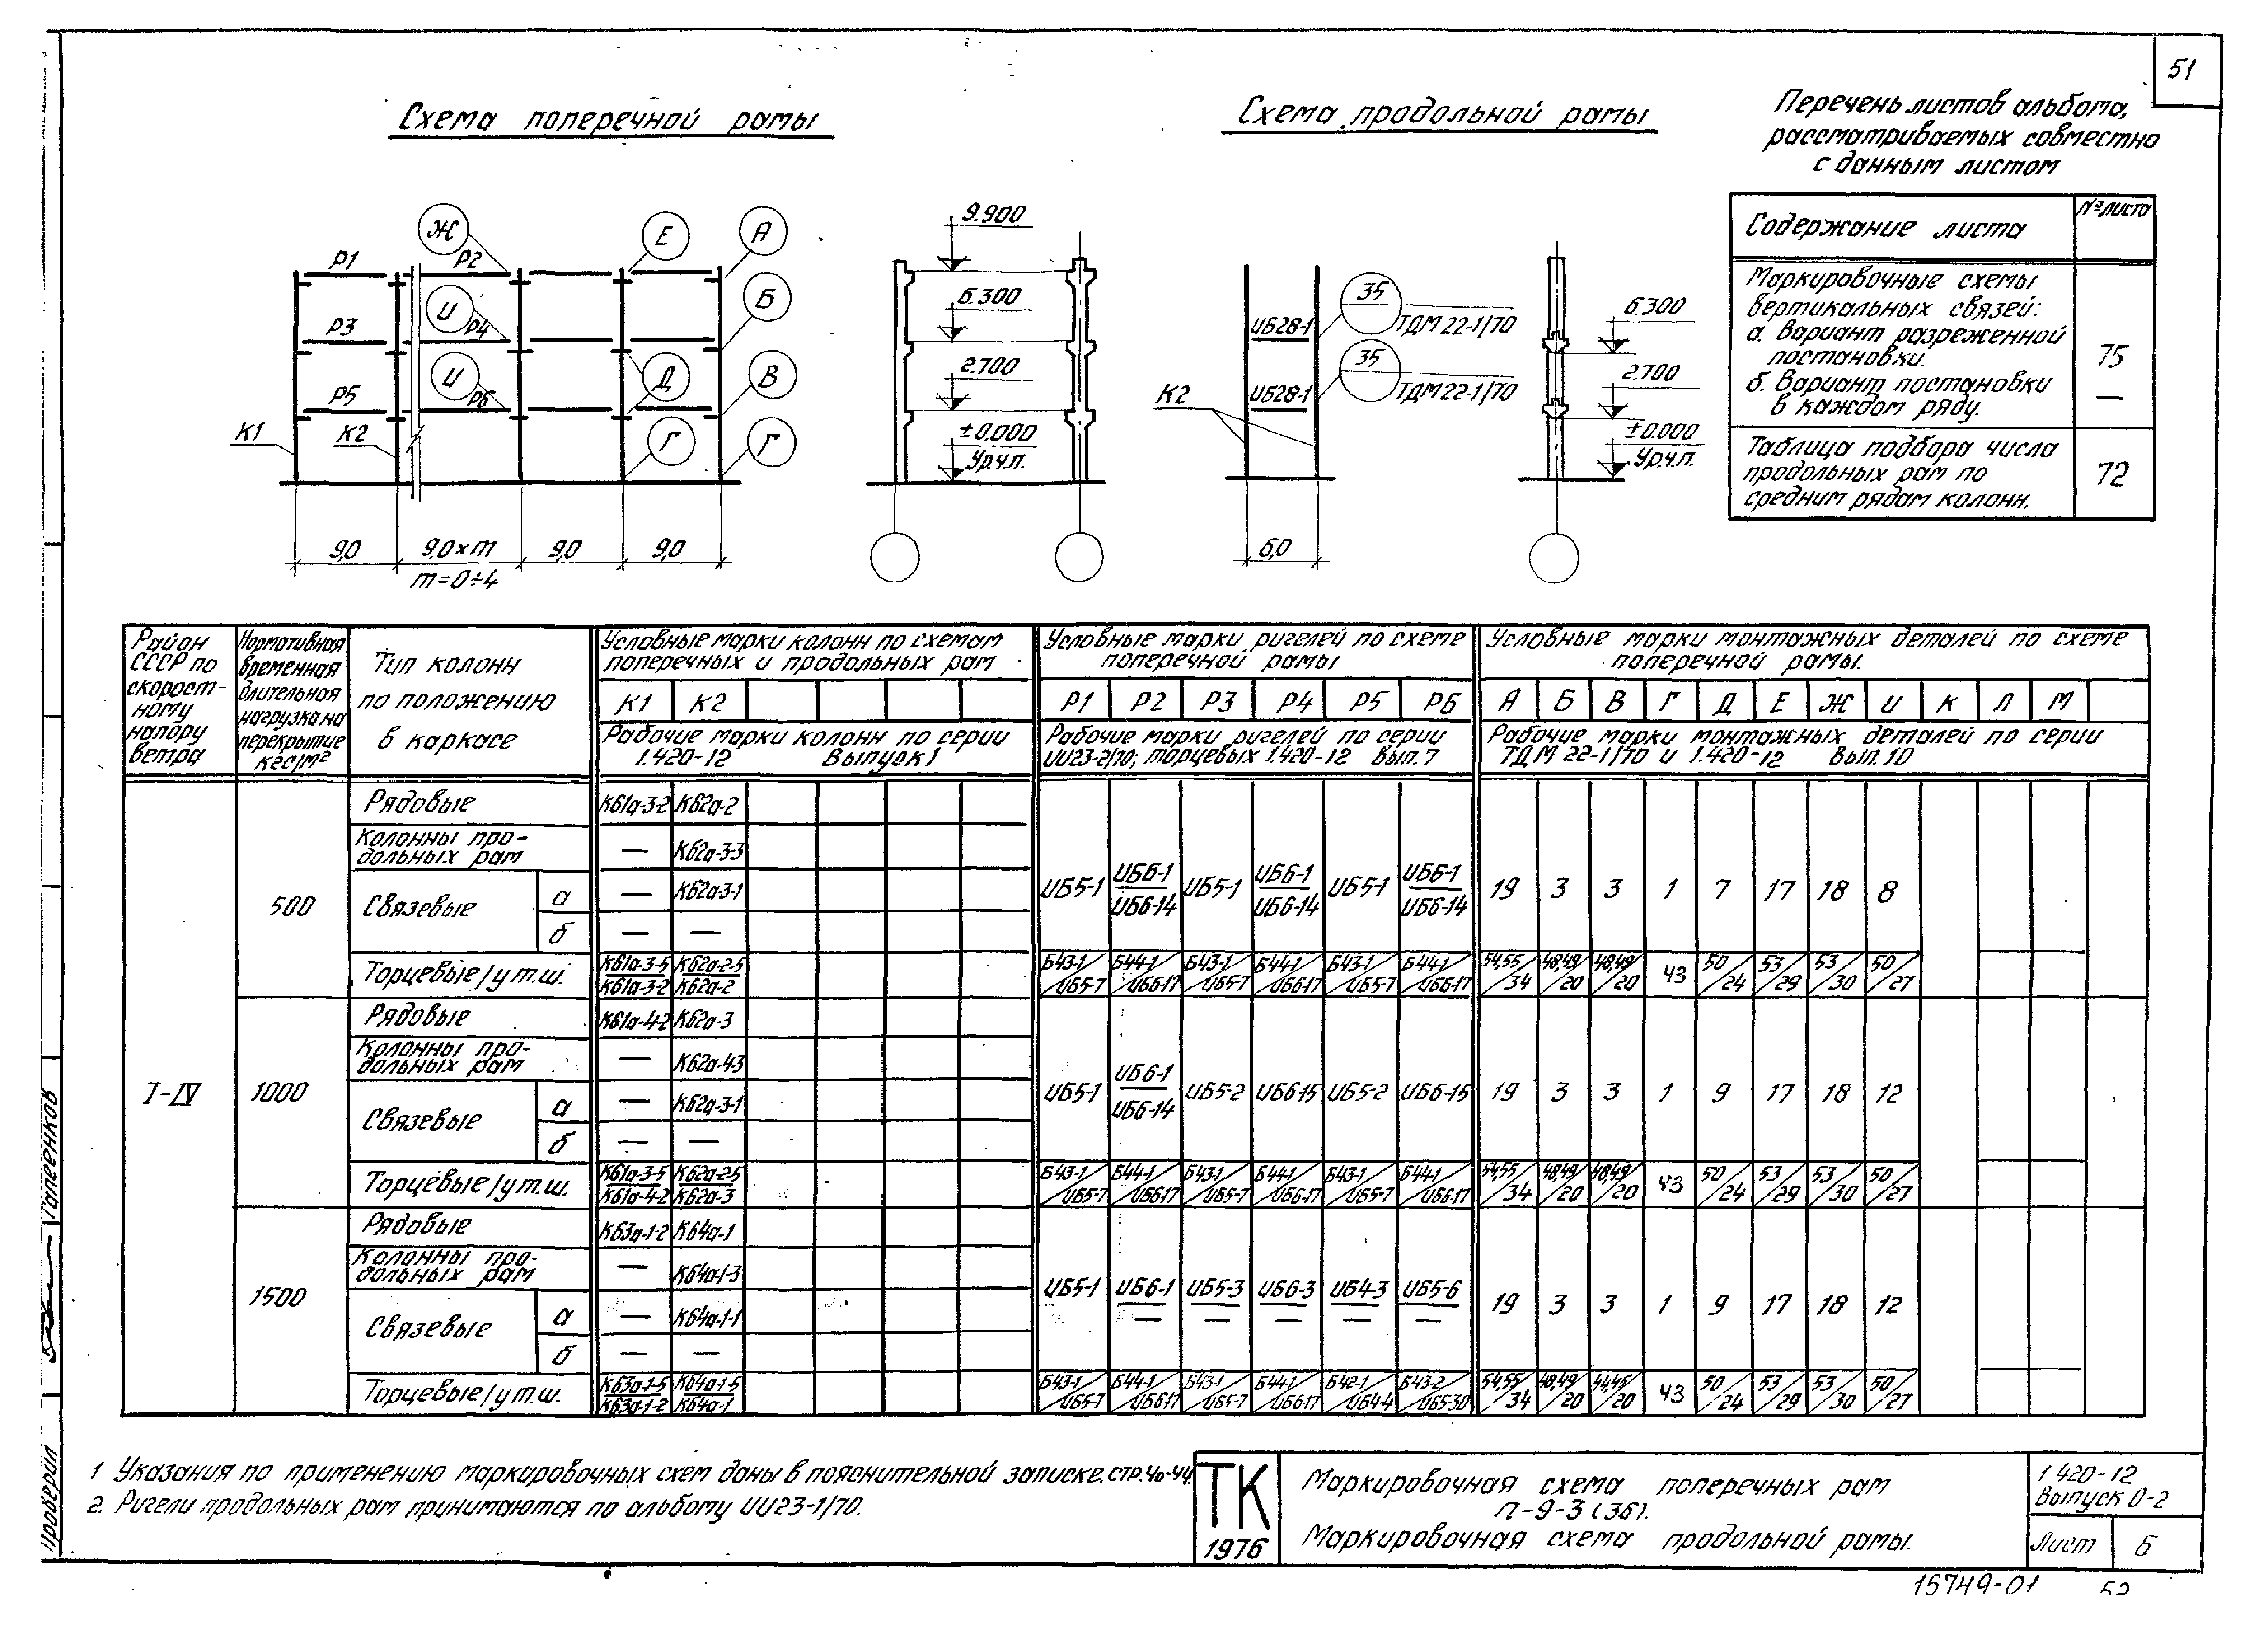 51
Схема поперечной рамы
Схема продольной рамы
Перечень листов альбома,
рассматриваемых совместно
с данным листом
Содержание листа
№ листа
Маркировочные схемы
вертикальных связей:
а. Вариант разреженной
постановки.
75
б. Вариант постановки
в каждом ряду.
—
Таблица подбора числа
продольных рам по
средним рядам колонн.
72
Ж
Е
А
Р1
Р2
И
Б
Р3
Р4
И
Д
В
Р5
Р6
К1
К2
Г
Г
9,0
9,0×m
9,0
9,0
m=0÷4
9.900
6.300
2.700
±0.000
Ур.ч.п.
ИБ28-1
35
ТДМ 22-1/70
35
ИБ28-1
ТДМ 22-1/70
К2
6,0
6.300
2.700
±0.000
Ур.ч.п.
Район
СССР по
скорост-
ному
напору
ветра
Нормативная
временная
длительная
нагрузка на
перекрытие
кгс/м²
Тип колонн
по положению
в каркасе
Условные марки колонн по схемам
поперечных и продольных рам
К1 К2
Рабочие марки колонн по серии
1.420-12 Выпуск 1
Условные марки ригелей по схеме
поперечной рамы
Р1 Р2 Р3 Р4 Р5 Р6
Рабочие марки ригелей по серии
ИИ23-2/70; торцевых 1.420-12 вып. 7
Условные марки монтажных деталей по схеме
поперечной рамы.
А Б В Г Д Е Ж И К Л М
Рабочие марки монтажных деталей по серии
ТДМ 22-1/70 и 1.420-12 вып. 10
I-IV
500
Рядовые К61а-3-2 К62а-2
Колонны про-
дольных рам — К62а-3-3
Связевые
а — К62а-3-1
б — —
ИБ5-1 ИБ6-1 ИБ5-1 ИБ6-1 ИБ5-1 ИБ6-1
ИБ6-14 ИБ6-14 ИБ6-14
19 3 3 1 7 17 18 8
Торцевые/у т.ш.
К61а-3-5 К62а-2-5
К61а-3-2 К62а-2
Б43-1/ИБ5-7 Б44-1/ИБ6-17 Б43-1/ИБ5-7 Б44-1/ИБ6-17 Б43-1/ИБ5-7 Б44-1/ИБ6-17
54,55/34 48,49/20 48,49/20 43 50/24 53/29 53/30 50/27
1000
Рядовые К61а-4-2 К62а-3
Колонны про-
дольных рам — К62а-4-3
Связевые
а — К62а-3-1
б — —
ИБ5-1 ИБ6-1 ИБ5-2 ИБ6-15 ИБ5-2 ИБ6-15
ИБ6-14
19 3 3 1 9 17 18 12
Торцевые/у т.ш.
К61а-3-5 К62а-2-5
К61а-4-2 К62а-3
Б43-1/ИБ5-7 Б44-1/ИБ6-17 Б43-1/ИБ5-7 Б44-1/ИБ6-17 Б43-1/ИБ5-7 Б44-1/ИБ6-17
54,55/34 48,49/20 48,49/20 43 50/24 53/29 53/30 50/27
1500
Рядовые К63а-1-2 К64а-1
Колонны про-
дольных рам — К64а-1-3
Связевые
а — К64а-1-1
б — —
ИБ5-1 ИБ6-1 ИБ5-3 ИБ6-3 ИБ4-3 ИБ5-6
— — — — —
19 3 3 1 9 17 18 12
Торцевые/у т.ш.
К63а-1-5 К64а-1-5
К63а-1-2 К64а-1
Б43-1/ИБ5-7 Б44-1/ИБ6-17 Б43-1/ИБ5-7 Б44-1/ИБ6-17 Б42-1/ИБ4-4 Б43-2/ИБ5-30
54,55/34 48,49/20 44,45/20 43 50/24 53/29 53/30 50/27
1 Указания по применению маркировочных схем даны в пояснительной записке. стр. 40-44.
2. Ригели продольных рам принимаются по альбому ИИ23-1/70.
ТК
1976
Маркировочная схема поперечных рам
П-9-3 (36).
Маркировочная схема продольной рамы.
1 420-12
Выпуск 0-2
Лист 6
15749-01
Проверил